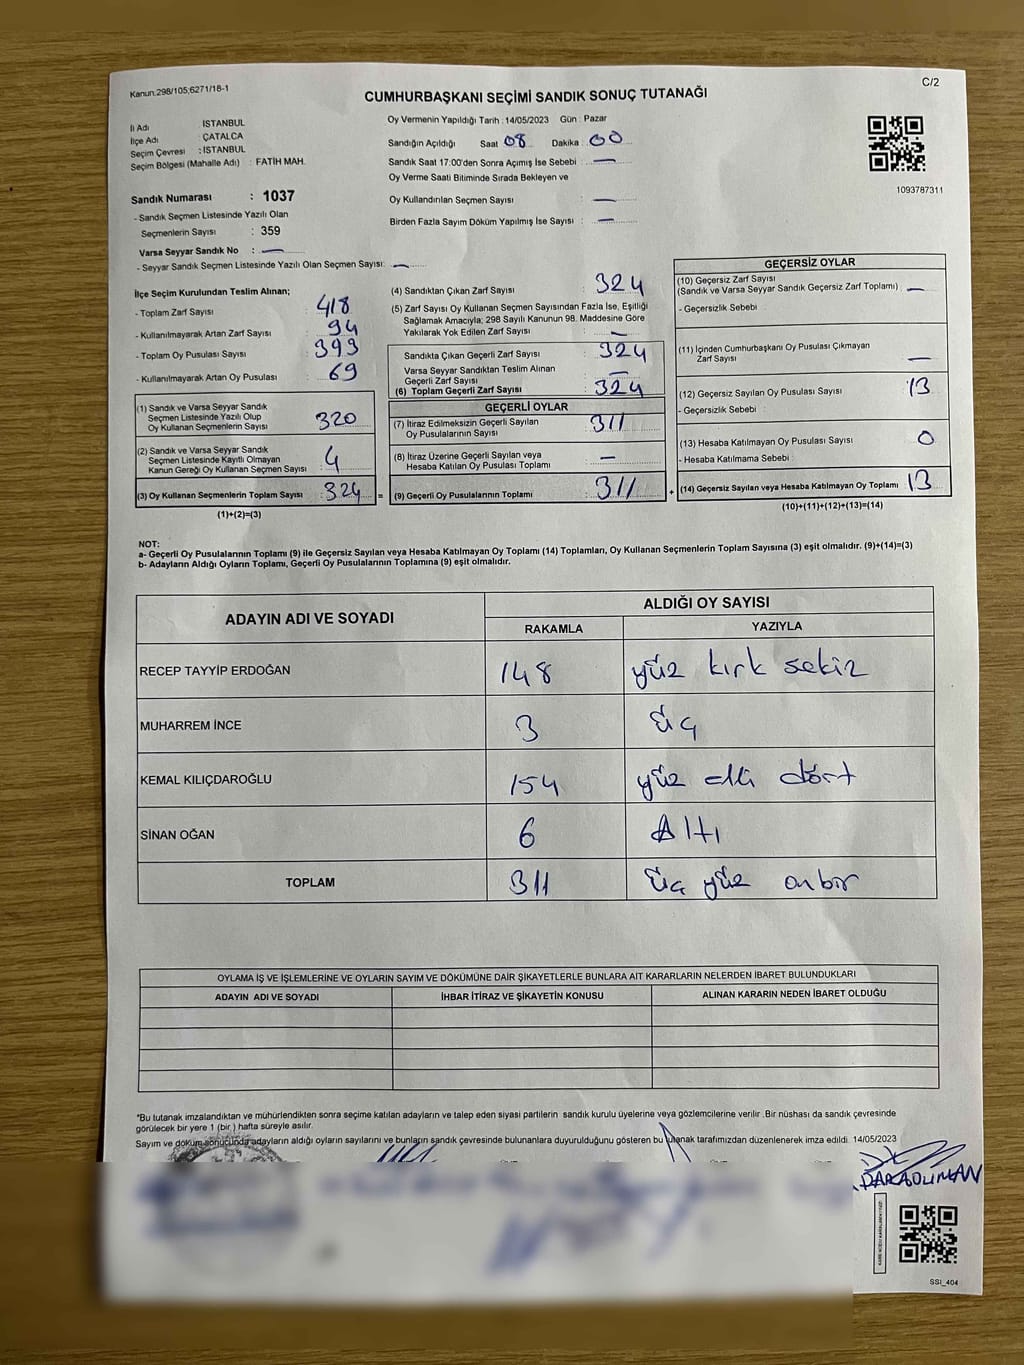 Kanun:298/105;6271/18-1
C/2
CUMHURBAŞKANI SEÇİMİ SANDIK SONUÇ TUTANAĞI
İl Adı : İSTANBUL
İlçe Adı : ÇATALCA
Seçim Çevresi : İSTANBUL
Seçim Bölgesi (Mahalle Adı) : FATİH MAH.
Sandık Numarası : 1037
- Sandık Seçmen Listesinde Yazılı Olan
Seçmenlerin Sayısı : 359
Varsa Seyyar Sandık No : —
- Seyyar Sandık Seçmen Listesinde Yazılı Olan Seçmen Sayısı: —
Oy Vermenin Yapıldığı Tarih : 14/05/2023 Gün : Pazar
Sandığın Açıldığı Saat 08 Dakika : 00
Sandık Saat 17:00'den Sonra Açımış İse Sebebi : —
Oy Verme Saati Bitiminde Sırada Bekleyen ve
Oy Kullandırılan Seçmen Sayısı : —
Birden Fazla Sayım Döküm Yapılmış İse Sayısı : —
1093787311
İlçe Seçim Kurulundan Teslim Alınan;
- Toplam Zarf Sayısı : 418
- Kullanılmayarak Artan Zarf Sayısı : 94
- Toplam Oy Pusulası Sayısı : 393
- Kullanılmayarak Artan Oy Pusulası : 69
(1) Sandık ve Varsa Seyyar Sandık
Seçmen Listesinde Yazılı Olup
Oy Kullanan Seçmenlerin Sayısı : 320
(2) Sandık ve Varsa Seyyar Sandık
Seçmen Listesinde Kayıtlı Olmayan
Kanun Gereği Oy Kullanan Seçmen Sayısı : 4
(3) Oy Kullanan Seçmenlerin Toplam Sayısı : 324 =
(1)+(2)=(3)
(4) Sandıktan Çıkan Zarf Sayısı : 324
(5) Zarf Sayısı Oy Kullanan Seçmen Sayısından Fazla İse, Eşitliği
Sağlamak Amacıyla; 298 Sayılı Kanunun 98. Maddesine Göre
Yakılarak Yok Edilen Zarf Sayısı : —
Sandıkta Çıkan Geçerli Zarf Sayısı : 324
Varsa Seyyar Sandıktan Teslim Alınan
Geçerli Zarf Sayısı : —
(6) Toplam Geçerli Zarf Sayısı : 324
GEÇERLİ OYLAR
(7) İtiraz Edilmeksizin Geçerli Sayılan
Oy Pusulalarının Sayısı : 311
(8) İtiraz Üzerine Geçerli Sayılan veya
Hesaba Katılan Oy Pusulası Toplamı : —
(9) Geçerli Oy Pusulalarının Toplamı : 311 +
GEÇERSİZ OYLAR
(10) Geçersiz Zarf Sayısı
(Sandık ve Varsa Seyyar Sandık Geçersiz Zarf Toplamı) : —
- Geçersizlik Sebebi :
(11) İçinden Cumhurbaşkanı Oy Pusulası Çıkmayan
Zarf Sayısı : —
(12) Geçersiz Sayılan Oy Pusulası Sayısı : 13
- Geçersizlik Sebebi :
(13) Hesaba Katılmayan Oy Pusulası Sayısı : 0
- Hesaba Katılmama Sebebi :
(14) Geçersiz Sayılan veya Hesaba Katılmayan Oy Toplamı : 13
(10)+(11)+(12)+(13)=(14)
NOT:
a- Geçerli Oy Pusulalarının Toplamı (9) ile Geçersiz Sayılan veya Hesaba Katılmayan Oy Toplamı (14) Toplamları, Oy Kullanan Seçmenlerin Toplam Sayısına (3) eşit olmalıdır. (9)+(14)=(3)
b- Adayların Aldığı Oyların Toplamı, Geçerli Oy Pusulalarının Toplamına (9) eşit olmalıdır.
ADAYIN ADI VE SOYADI ALDIĞI OY SAYISI
RAKAMLA YAZIYLA
RECEP TAYYİP ERDOĞAN 148 yüz kırk sekiz
MUHARREM İNCE 3 üç
KEMAL KILIÇDAROĞLU 154 yüz elli dört
SİNAN OĞAN 6 Altı
TOPLAM 311 üç yüz onbir
OYLAMA İŞ VE İŞLEMLERİNE VE OYLARIN SAYIM VE DÖKÜMÜNE DAİR ŞİKAYETLERLE BUNLARA AİT KARARLARIN NELERDEN İBARET BULUNDUKLARI
ADAYIN ADI VE SOYADI İHBAR İTİRAZ VE ŞİKAYETİN KONUSU ALINAN KARARIN NEDEN İBARET OLDUĞU
*Bu tutanak imzalandıktan ve mühürlendikten sonra seçime katılan adayların ve talep eden siyasi partilerin sandık kurulu üyelerine veya gözlemcilerine verilir .Bir nüshası da sandık çevresinde
görülecek bir yere 1 (bir ) hafta süreyle asılır.
Sayım ve döküm sonucunda adayların aldığı oyların sayılarını ve bunların sandık çevresinde bulunanlara duyurulduğunu gösteren bu tutanak tarafımızdan düzenlenerek imza edildi. 14/05/2023
SSI_404